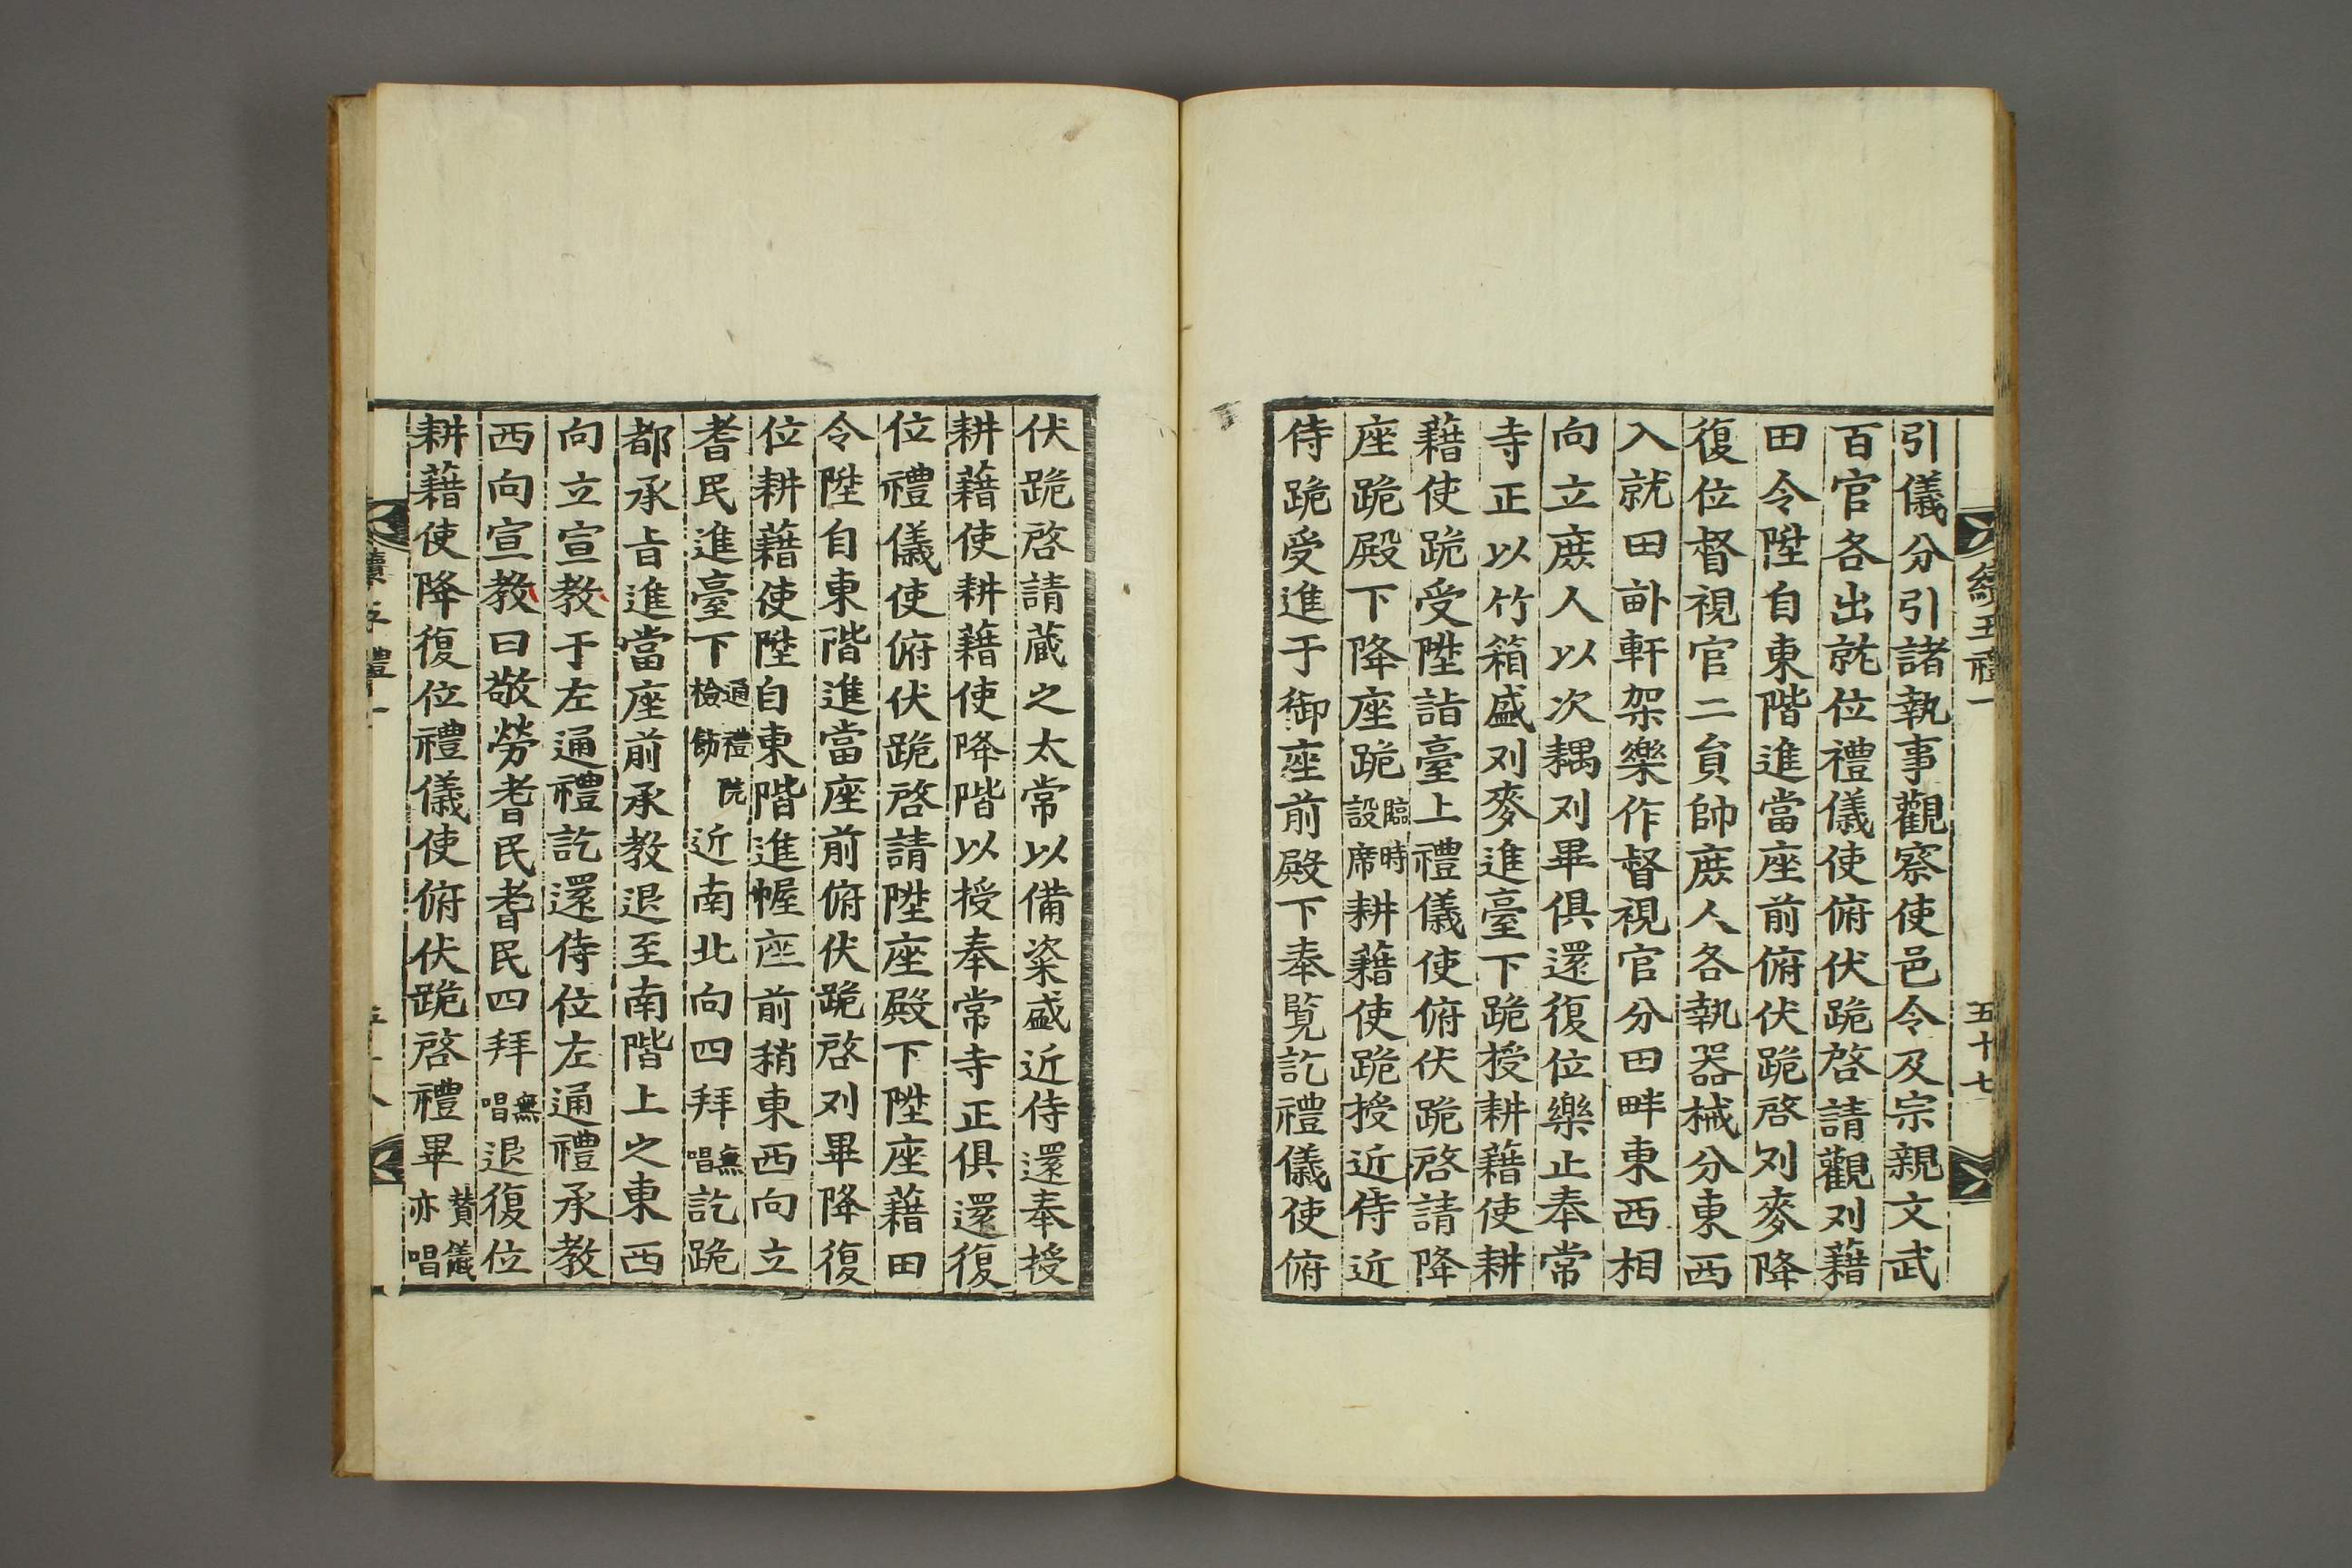 續五禮一
五十七
引儀分引諸執事觀察使邑令及宗親文武
百官各出就位禮儀使俯伏跪啓請觀刈藉
田令陞自東階進當座前俯伏跪啓刈麥降
復位督視官二貟帥庶人各執器械分東西
入就田畝軒架樂作督視官分田畔東西相
向立庶人以次耦刈畢俱還復位樂止奉常
寺正以竹箱盛刈麥進臺下跪授耕藉使耕
藉使跪受陞詣臺上禮儀使俯伏跪啓請降
座跪殿下降座跪臨時設席耕藉使跪授近侍近
侍跪受進于御座前殿下奉覧訖禮儀使俯
伏跪啓請蔵之太常以備粢盛近侍還奉授
耕藉使耕藉使降階以授奉常寺正俱還復
位禮儀使俯伏跪啓請陞座殿下陞座藉田
令陞自東階進當座前俯伏跪啓刈畢降復
位耕藉使陞自東階進幄座前稍東西向立
耆民進臺下通禮院檢飭近南北向四拜無唱訖跪
都承旨進當座前承教退至南階上之東西
向立宣教于左通禮訖還侍位左通禮承教
西向宣教曰敬勞耆民耆民四拜無唱退復位
耕藉使降復位禮儀使俯伏跪啓禮畢賛儀亦唱
續五禮一